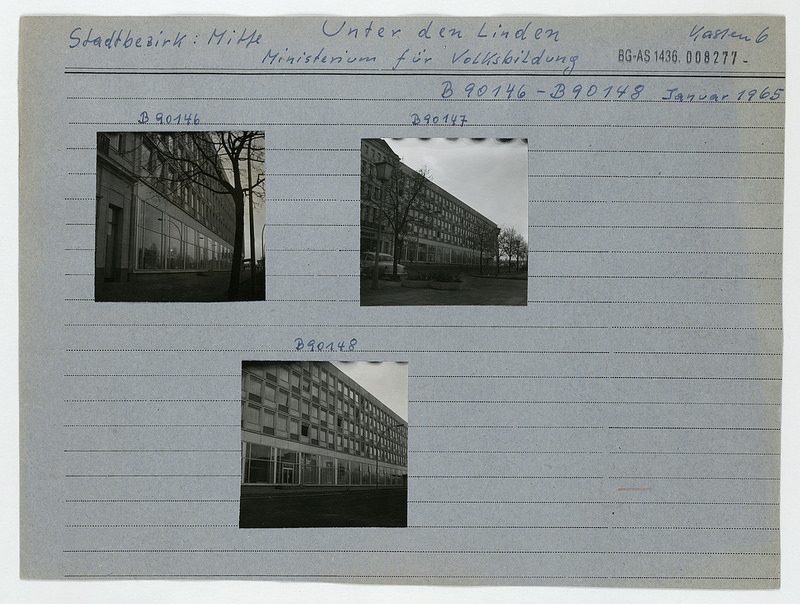 Stadtbezirk: Mitte Unter den Linden Kasten 6
Ministerium für Volksbildung BG-AS 1436. 008277-
B 90146 - B 90148 Januar 1965
B 90146 B 90147
B 90148